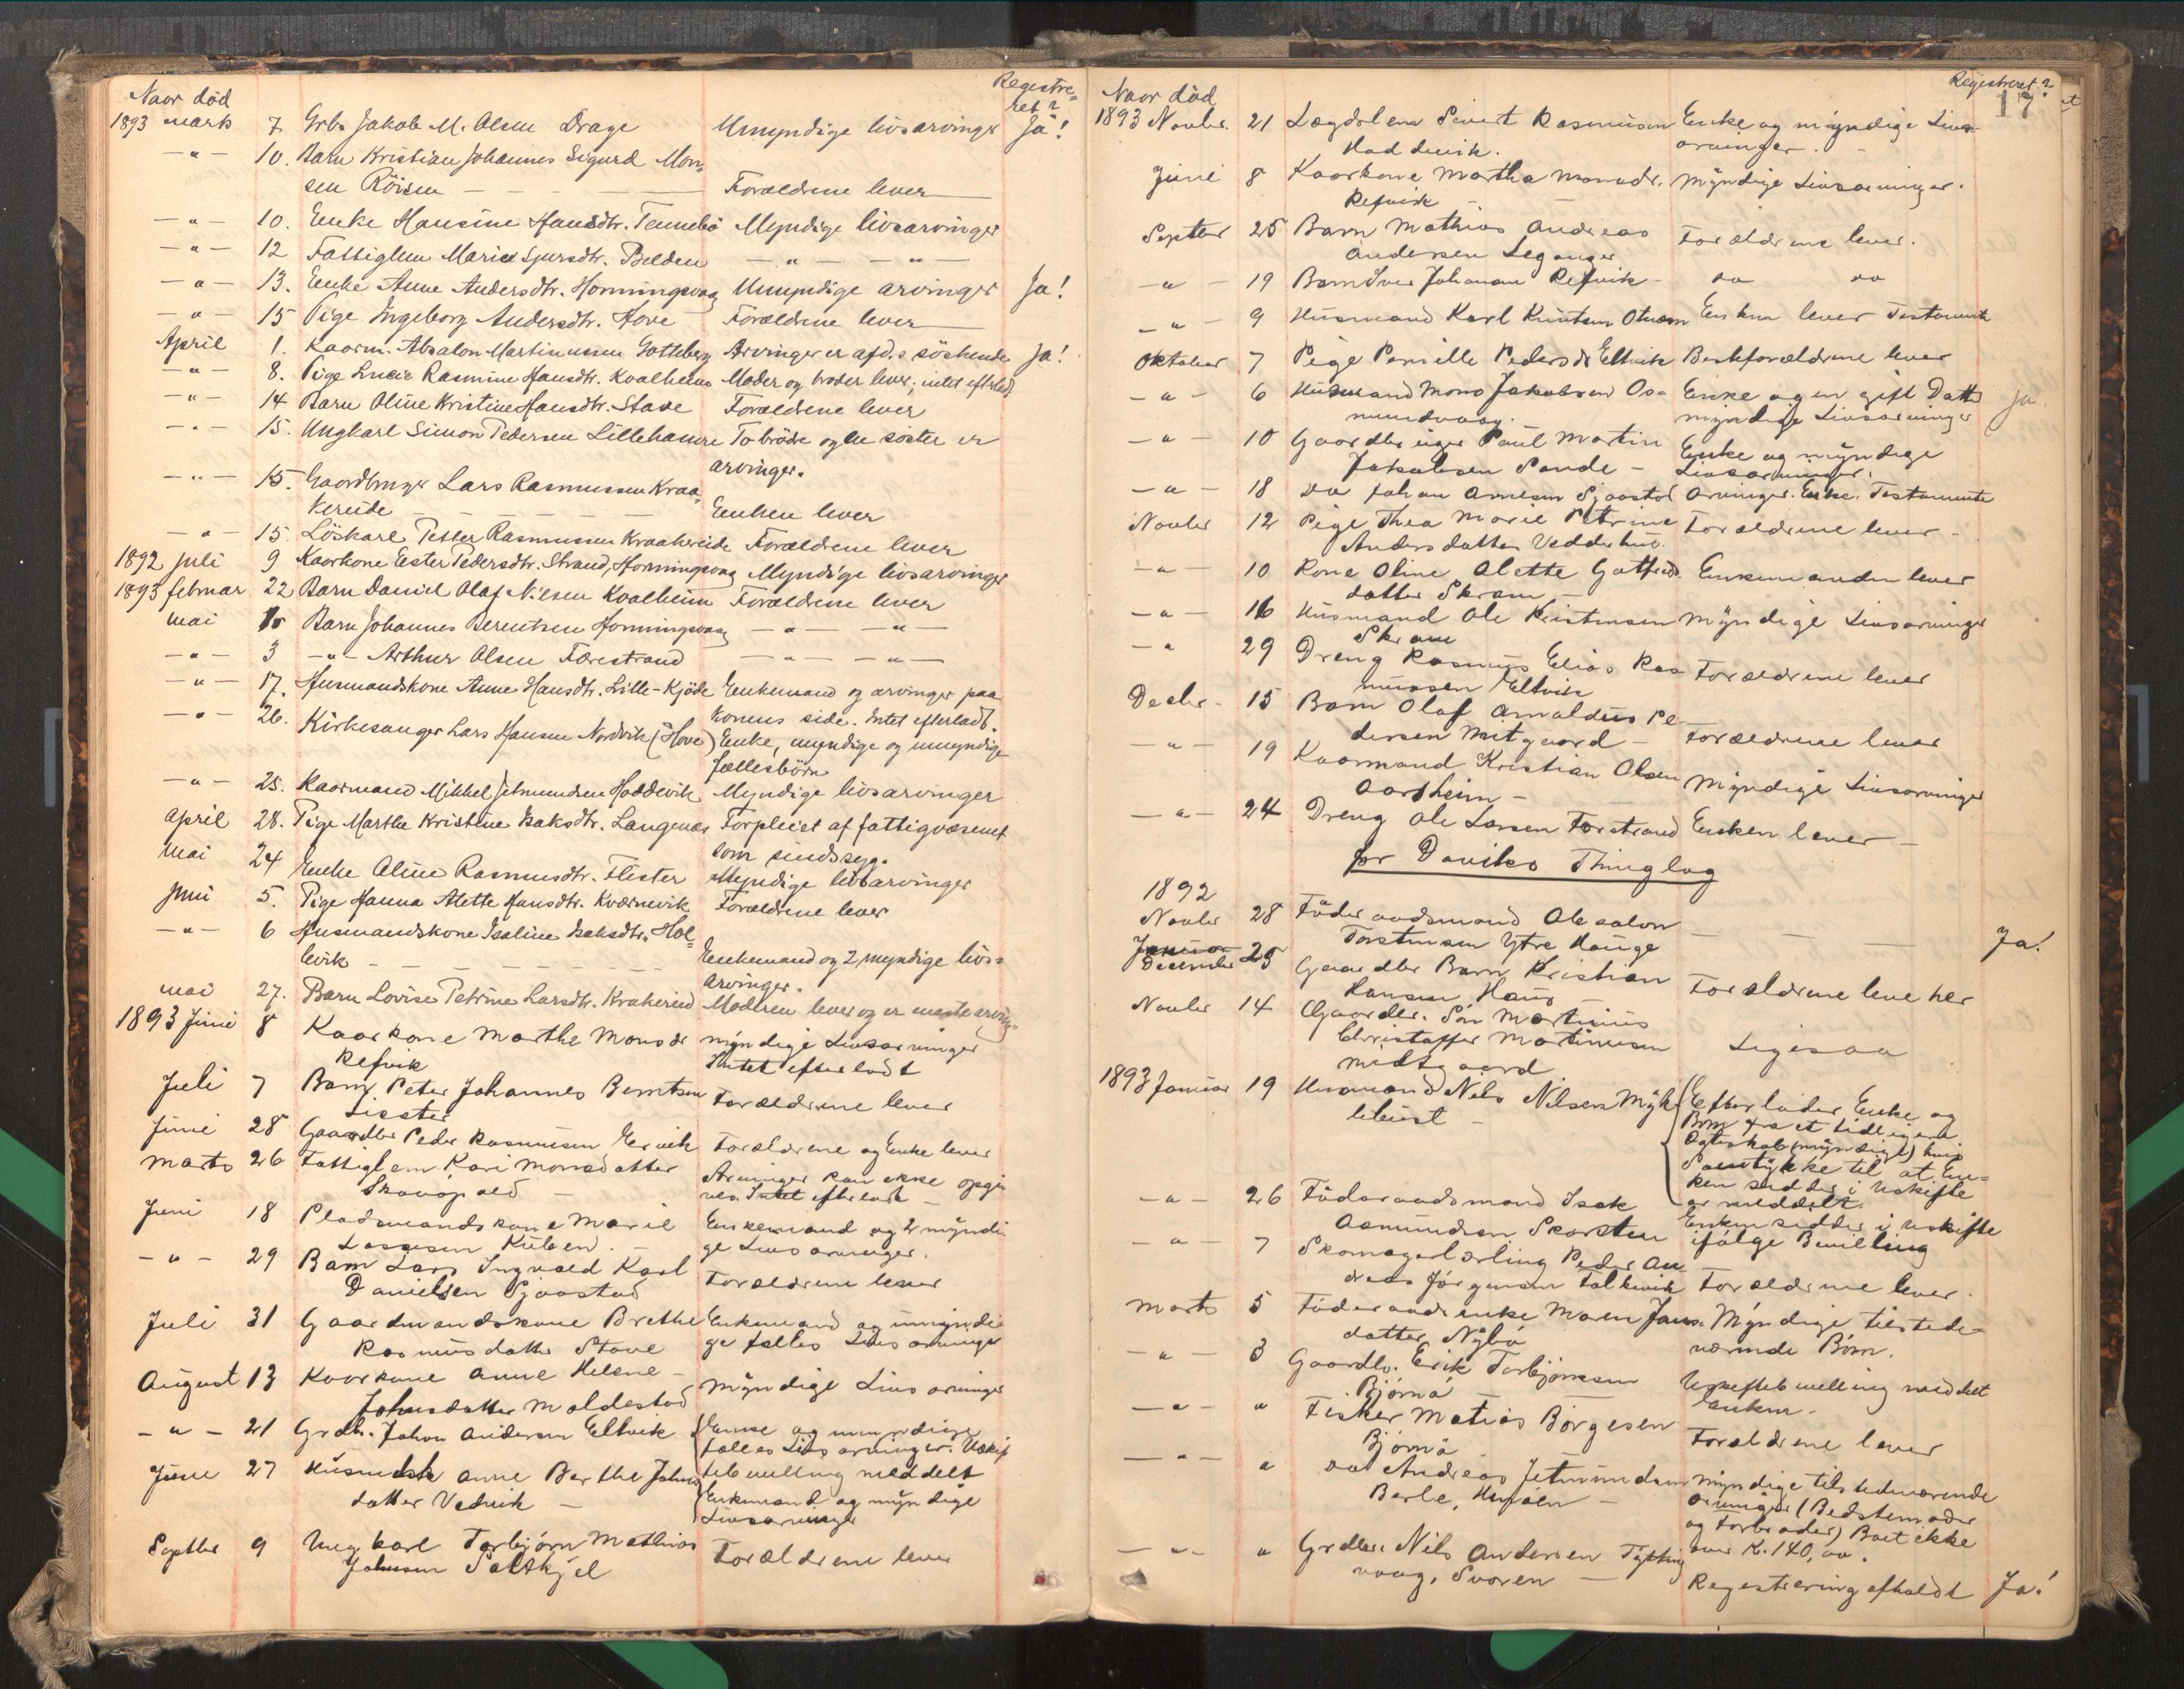 Naar död
Registre-
ret?
1893 mars 7 Grbr Jakob M. Olsen Drage Umyndige livsarvinger Ja!
-"- 10. Barn Kristian Johannes Sigurd Mon-
sen Röisen - - Forældrene lever
-"- 10. Enke Hansine Hansdtr. Tennebö Myndige livsarvinger
-"- 12 Fattiglem Maria Sjursdtr. Belden -"- -"-
-"- 13. Enke Anne Andersdtr. Honningsvaag Umyndige arvinger Ja!
-"- 15 Pige Ingeborg Andersdtr. Hove Forældrene lever
April 1. Kaarm. Absalon Martinussen Gotteberg Arvinger er afd. s söskende Ja!
-"- 8. Pige Lucie Rasmine Hansdtr. Kvalheim Moder og broder lever; intet efterladt
-"- 14 Barn Oline Kristine Hansdtr. Stave Forældrene lever
-"- 15. Ungkarl Simon Pedersen Lillehamre To brödre og en söster er
arvinger.
-"- 15. Gaardbruger Lars Rasmussen Kraa-
kereide - - Enken lever
-"- 15. Löskarl Petter Rasmussen Kraakereide Forældrene lever
1892 juli 9 Kaarkone Ester Pedersdtr. Strand, Honningsvaag Myndige livsarvinger
1893 februar 22 Barn Daniel Olaf Nilsen Kvalheim Forældrene lever
mai 10 Barn Johannes Berentsen Honningsvaag -"- -"-
-"- 3 -"- Arthur Olsen Færestrand -"- -"-
-"- 17. Husmandskone Anne Hansdtr. Lille-Kjöde Enkemand og arvinger paa
konens side. Intet efterladt.
-"- 26. Kirkesanger Lars Hansen Nordvik (Hove) Enke, myndige og umyndige
fællesbörn
-"- 25. Kaarmand Mikkel Jetmundsen Hoddevik Myndige livsarvinger
April 28. Pige Marthe Kristine Isaksdtr. Langenes Forpleiet af fattigvæsenet
som sindssyg.
Mai 24 Enke Oline Rasmusdtr. Flister Myndige livsarvinger
Juni 5. Pige Hanna Alette Hansdtr. Kværnevik Forældrene lever
-"- 6 Husmandskone Isaline Isaksdtr. Hol-
levik - - Enkemand og 2 myndige livs-
arvinger.
mai 27. Barn Lovise Petrine Larsdtr. Krakereid Moderen lever og er eneste arving
1893 Juni 8 Kaarkone Marthe Monsdr myndige Livsarvinger
Refvik Intet efterladt
Juli 7 Barn Peter Johannes Berntsen Forældrene lever
Lister
Juni 28 Gaardbr Peder Rasmusen Ervik Forældrene og Enke lever
Marts 26 Fattiglem Kari Monsdatter Arvinger kan ikke opgi
- ves. Intet efterladt -
Juni 18 Pladsmandskone Marie Enkemand og 2 myndi
Lassesen Kulsen. - ge Livsarvinger.
-"- 29 Barn Lars Ingvald Karl Forældrene lever
Danielsen Sjaastad
Juli 31 Gaardmandskone Brethe Enkemand og umyndi
Rasmusdatter Stave ge fælles Livsarvinger
August 13 Kaarkone Anne Helene - Myndige Livsarvinger
Johnsdatter Maldestad
-"- 21 Grdbr. Johan Andersen Eltvik Enke og umyndige
fælles Livsarvinger. Uskif
Juni 27 Husmdsk Anne Berthe Johns tebevilling meddelt
datter Vedvik - Enkemand og myndige
Livsarvinger
Septbr 9 Ungkarl Torbjörn Mathias Forældrene lever
Johnsen Saltkjel
Naar död
Registreret?
17
1893 Novbr. 21 Lægdslem Sivert Rasmusen Enke og myndige Livs-
Hoddevik. arvinger. -
Juni 8 Kaarkone Martha Monsdr. Myndige Livsarvinger.
Refvik
Septbr 25 Barn Mathias Andreas Forældrene lever.
Andersen Leganger
-"- 19 Barn Iver Johansen Refvik - do do
-"- 9 Husmand Karl Knutsen Otnesen Enken lever Testamente
Oktober 7 Pige Pernille Pedersdr Eltvik Bestforældrene lever
-"- 6 Husmand Mons Jakobsen Os- Enke og en gift Datter Ja
mundsvaag. myndige Livsarvinger
-"- 10 Gaardbruger Paul Martin Enke og myndige
Jakobsen Sande - Livsarvinger.
-"- 18 do Johan Arnesen Sjaastad Arvinger. Enke. Testamente
Novbr 12 Pige Thea Marie Petrine Forældrene lever -
Andersdatter Vedderhus.
-"- 10 Kone Oline Alette Gotfreds Enkemanden lever
datter Skram -
-"- 16 Husmand Ole Kristensen Myndige Livsarvinger
Skram
-" 29 Dreng Rasmus Elias Ras Forældrene lever
mussen Eltvik
Decbr - 15 Barn Olaf Arnoldus Pe-
dersen Mitgaard - Forældrene lever
-"- 19 Kaarmand Kristian Olsen Myndige Livsarvinger
Aarsheim -
-"- 24 Dreng Ole Larsen Forstrand Enken lever -
for Daviks Thinglag
1892
Novbr 28 Föderaadsmand Absalon - - Ja!
Torstensen Ytre Hauge
Januar
December 25 Gaardbr Barn Kristian Forældrene leve her
Hansen Haus
Novbr 14 Gaardbr. Sön Martinus Ligesaa
Christoffer Martinusen
Midtgaard
1893 Januar 19 Husmand Nils Nilsen Mykle- Efterlader Enke og
bust - Börn fra et tidligere
Ægteskab (myndige) hvis
Samtykke til at En-
ken sidder i Uskifte
er meddelt.
-"- 26 Föderaadsmand Isak Enken sidder i uskifte
Asmundsen Skorsten ifölge Bevilling
-"- 7 Skomagerlærling Peder An
dreas Jörgensen Falkevik Forældrene lever.
Marts 5 Föderaadsenke Maren Jans- Myndige tilstede-
datter Nybö værende Börn.
-"- 3 Gaardbr. Erik Torbjörnsen Uskiftebevilling meddelt
Björnö - Enken -
-"- " Fisker Matias Börgesen Forældrene lever
Björnö
-"- " do Andreas Jetmundsen Myndige tilstedeværende
Berle, - arvinger (Bedstemoder
og Forbroder) Boet ikke
over K. 140,00.
-"- " Grdbr. Nils Andersen
vaag, Svoren - Registrering afholdt Ja!